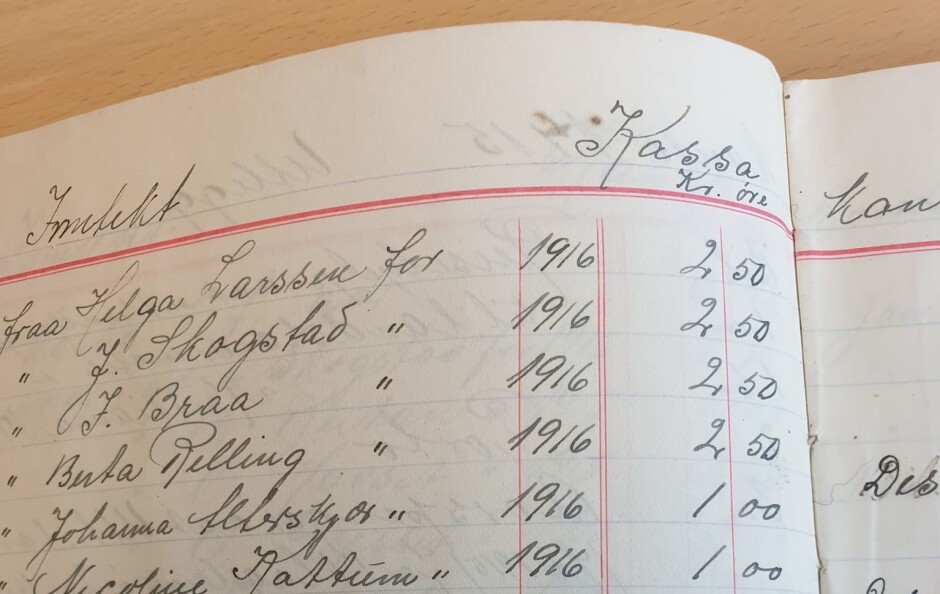 Kassa
Inntekt Kr. øre
fraa Helga Larssen for 1916 2 50
" J. Skogstad " 1916 2 50
" J. Braa " 1916 2 50
" Berta Relling " 1916 2 50
" Johanna " 1916 1 00
" Nicoline Kattum " 1916 1 00
kan
Des